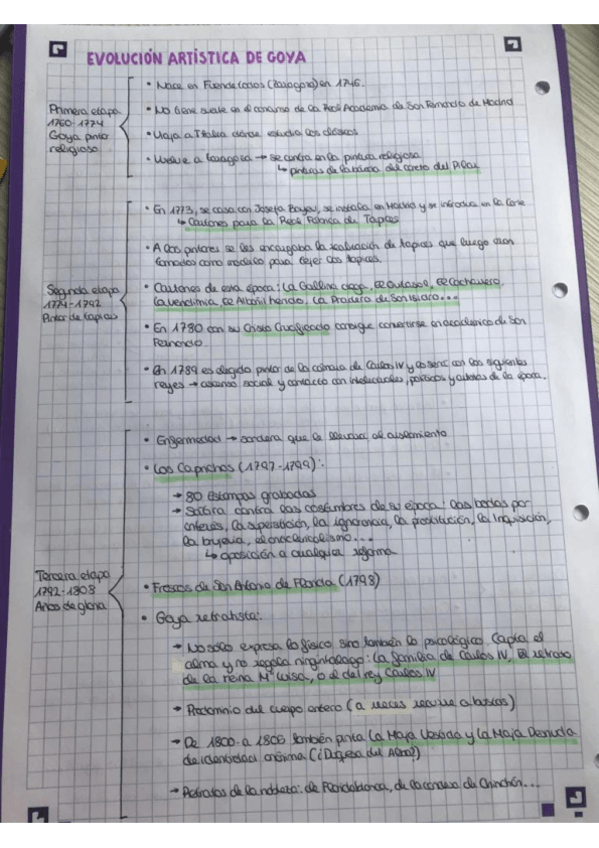 EVOLUCIÓN ARTÍSTICA DE GOYA
Primera etapa
1760-1774
Goya pintor
religioso
• Nace en Fuendetodos (Zaragoza) en 1746.
• No tiene suerte en el concurso de la Real Academia de San Fernando de Madrid
• Viaja a Italia donde estudia los clásicos
• Vuelve a Zaragoza → se centra en la pintura religiosa
↳ pinturas de la bóveda del coreto del Pilar
Segunda etapa
1774-1792
Pintor de tapices
• En 1773, se casa con Josefa Bayeu, se instala en Madrid y se introduce en la Corte
↳ Cartones para la Real Fábrica de Tapices
• A los pintores se les encargaba la realización de tapices que luego eran
tomados como modelo para tejer los tapices.
• Cartones de esta época: La Gallina ciega, El Quitasol, El Cacharrero,
La vendimia, El Albañil herido, La Pradera de San Isidro...
• En 1780 con su Cristo Crucificado consigue convertirse en académico de San
Fernando.
• En 1789 es elegido pintor de la cámara de Carlos IV y lo será con los siguientes
reyes → ascenso social y contacto con intelectuales, políticos y artistas de la época.
Tercera etapa
1792-1808
Años de gloria
• Enfermedad → sordera que le llevará al aislamiento
• Los Caprichos (1797-1799):
→ 80 Estampas grabadas
→ Sátira contra las costumbres de su época: las bodas por
interés, la superstición, la ignorancia, la prostitución, la Inquisición,
la brujería, el anticlericalismo...
↳ oposición a cualquier reforma
• Frescos de San Antonio de Florida (1798)
• Goya retratista:
→ No solo expresa lo físico sino también lo psicológico. Capta el
alma y no regala ningún halago: La familia de Carlos IV, El retrato
de la reina Mª Luisa, o el del rey Carlos IV
→ Predominio del cuerpo entero (a veces recurre a bustos)
→ De 1800 a 1806 también pinta La Maja Vestida y La Maja Desnuda
de identidad anónima (¿Duquesa del Alba?)
→ Retratos de la nobleza: de Floridablanca, de la condesa de Chinchón...